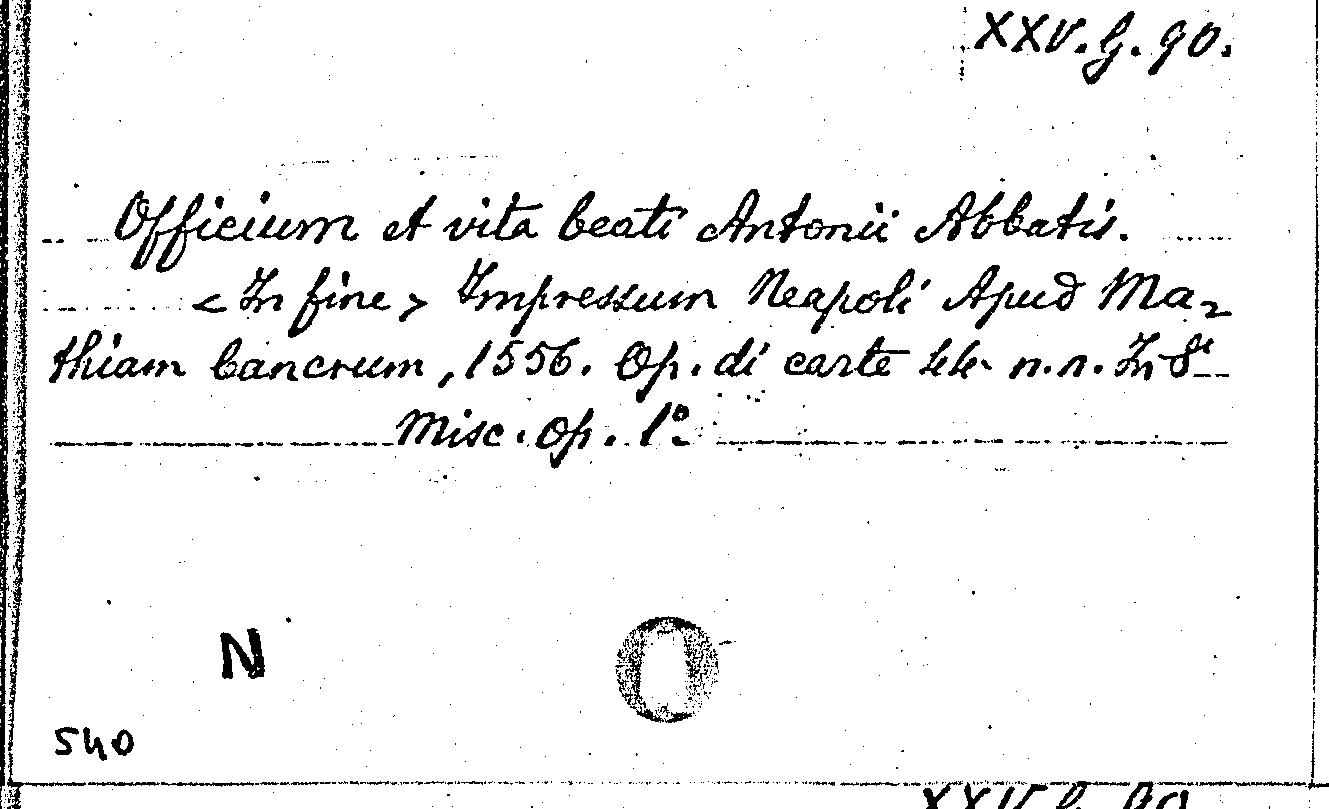 XXV.G.90.
Officium et vita beati Antonii Abbatis.
<In fine> Impressum Neapoli Apud Ma-
thiam Cancrum, 1556. Op. di carte 44 n.n. In 8°
Misc. Op. 1°
N
540
XXV.G.90